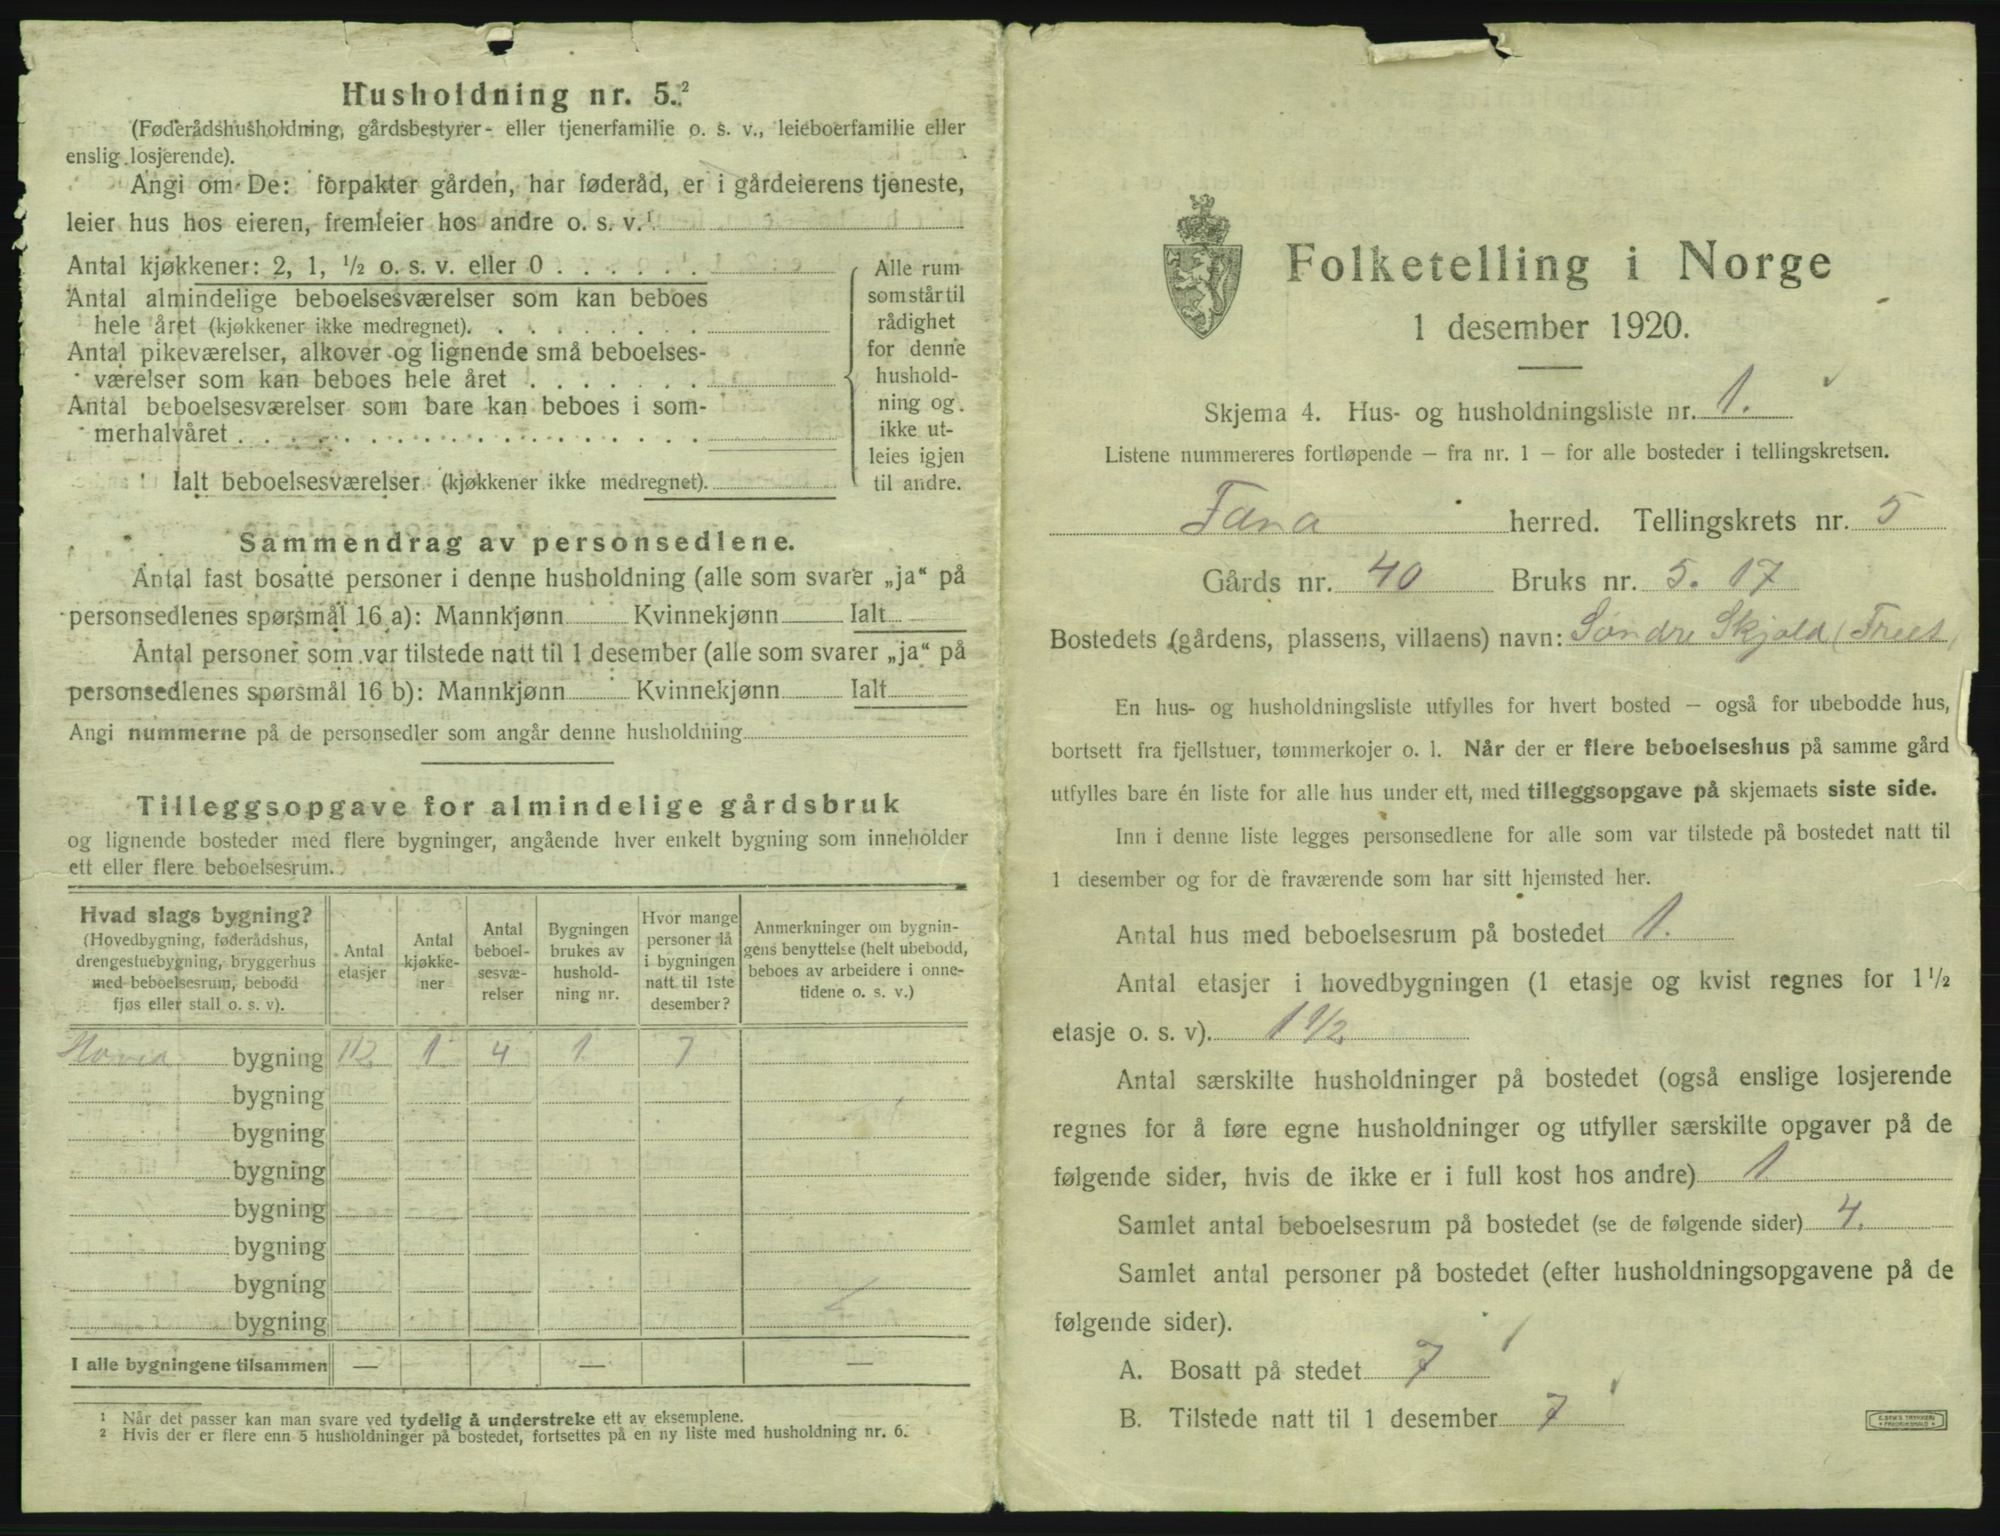 Husholdning nr. 5.²
(Føderådshusholdning, gårdsbestyrer- eller tjenerfamilie o. s. v., leieboerfamilie eller
enslig losjerende).
Angi om De: forpakter gården, har føderåd, er i gårdeierens tjeneste,
leier hus hos eieren, fremleier hos andre o. s. v.¹
Antal kjøkkener: 2, 1, ½ o. s. v. eller 0 . . . . . .
Antal almindelige beboelsesværelser som kan beboes
hele året (kjøkkener ikke medregnet). . . . . . . . .
Antal pikeværelser, alkover og lignende små beboelses-
værelser som kan beboes hele året . . . . . . .
Antal beboelsesværelser som bare kan beboes i som-
merhalvåret . . . . . . . . . . . . . . . . . .
Ialt beboelsesværelser (kjøkkener ikke medregnet).
Alle rum
som står til
rådighet
for denne
hushold-
ning og
ikke ut-
leies igjen
til andre.
Sammendrag av personsedlene.
Antal fast bosatte personer i denne husholdning (alle som svarer „ja“ på
personsedlenes spørsmål 16 a): Mannkjønn Kvinnekjønn Ialt
Antal personer som var tilstede natt til 1 desember (alle som svarer „ja“ på
personsedlenes spørsmål 16 b): Mannkjønn Kvinnekjønn Ialt
Angi nummerne på de personsedler som angår denne husholdning
Tilleggsopgave for almindelige gårdsbruk
og lignende bosteder med flere bygninger, angående hver enkelt bygning som inneholder
ett eller flere beboelsesrum.
Hvad slags bygning?
(Hovedbygning, føderådshus,
drengestuebygning, bryggerhus
med beboelsesrum, bebodd
fjøs eller stall o. s. v).
Antal
etasjer
Antal
kjøkke-
ner
Antal
beboel-
sesvæ-
relser
Bygningen
brukes av
hushold-
ning nr.
Hvor mange
personer lå
i bygningen
natt til 1ste
desember?
Anmerkninger om bygnin-
gens benyttelse (helt ubebodd,
beboes av arbeidere i onne-
tidene o. s. v.)
Hoved bygning 1½ 1 4 1. 7
bygning
bygning
bygning
bygning
bygning
bygning
bygning
I alle bygningene tilsammen — — —
¹ Når det passer kan man svare ved tydelig å understreke ett av eksemplene.
² Hvis der er flere enn 5 husholdninger på bostedet, fortsettes på en ny liste med husholdning nr. 6.
Folketelling i Norge
1 desember 1920.
Skjema 4. Hus- og husholdningsliste nr. 1.
Listene nummereres fortløpende – fra nr. 1 – for alle bosteder i tellingskretsen.
Fana herred. Tellingskrets nr. 5
Gårds nr. 40 Bruks nr. 5. 17
Bostedets (gårdens, plassens, villaens) navn: Søndre Skjold
En hus- og husholdningsliste utfylles for hvert bosted – også for ubebodde hus,
bortsett fra fjellstuer, tømmerkojer o. l. Når der er flere beboelseshus på samme gård
utfylles bare én liste for alle hus under ett, med tilleggsopgave på skjemaets siste side.
Inn i denne liste legges personsedlene for alle som var tilstede på bostedet natt til
1 desember og for de fraværende som har sitt hjemsted her.
Antal hus med beboelsesrum på bostedet 1.
Antal etasjer i hovedbygningen (1 etasje og kvist regnes for 1 ½
etasje o. s. v). 1 ½.
Antal særskilte husholdninger på bostedet (også enslige losjerende
regnes for å føre egne husholdninger og utfyller særskilte opgaver på de
følgende sider, hvis de ikke er i full kost hos andre) 1.
Samlet antal beboelsesrum på bostedet (se de følgende sider) 4.
Samlet antal personer på bostedet (efter husholdningsopgavene på de
følgende sider).
A. Bosatt på stedet 7
B. Tilstede natt til 1 desember 7